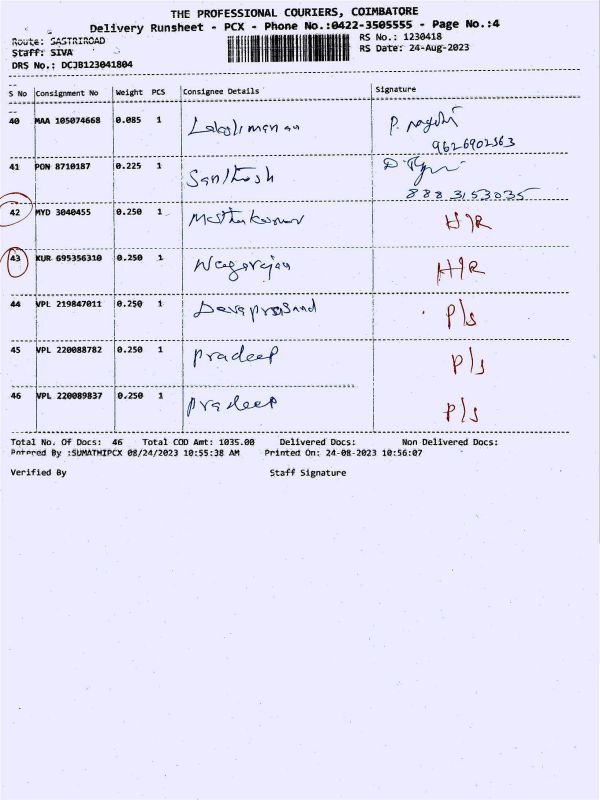 THE PROFESSIONAL COURIERS, COIMBATORE
Delivery Runsheet - PCX - Phone No.:0422-3505555 - Page No.:4
Route: SASTRIROAD
RS No.: 1230418
Staff: SIVA
RS Date: 24-Aug-2023
DRS No.: DCJB123041804
S No Consignment No Weight PCS Consignee Details Signature
40 MAA 105074668 0.085 1 Lakshmanan P.
9626902563
41 PON 8710187 0.225 1 Santhosh
8883153035
42 MYD 3040455 0.250 1 Muthukumar H/R
43 KUR 695356310 0.250 1 Nagarajan H/R
44 VPL 219847011 0.250 1 Devaprasand P/s
45 VPL 220088782 0.250 1 Pradeep P/s
46 VPL 220089837 0.250 1 Pradeep P/s
Total No. Of Docs: 46 Total COD Amt: 1035.00 Delivered Docs: Non Delivered Docs:
Entered By :SUMATHIPCX 08/24/2023 10:55:38 AM Printed On: 24-08-2023 10:56:07
Verified By Staff Signature